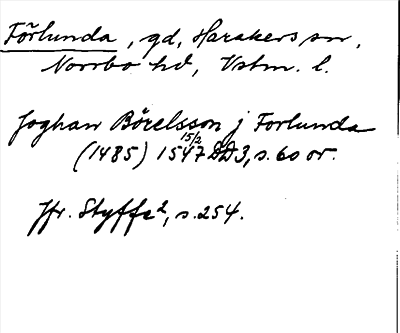 Förlunda, gd, Harakers sn,
Norrbo hd, Vstm. l.
Joghan Börelsson j Forlunda
(1485) 15/2 1547 DD3, s. 60 or.
Jfr. Styffe2, s. 254.